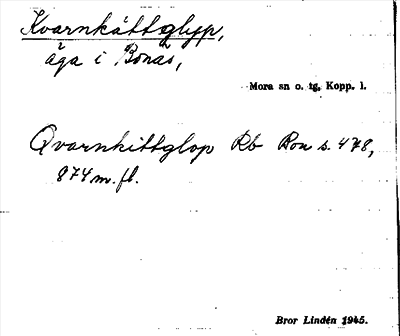 Kvarnkåttglypp,
äga i Bonäs,
Mora sn o. tg, Kopp. l.
Qvarnkittglop Rb Ron s. 478,
874 m. fl.
Bror Lindén 1945.